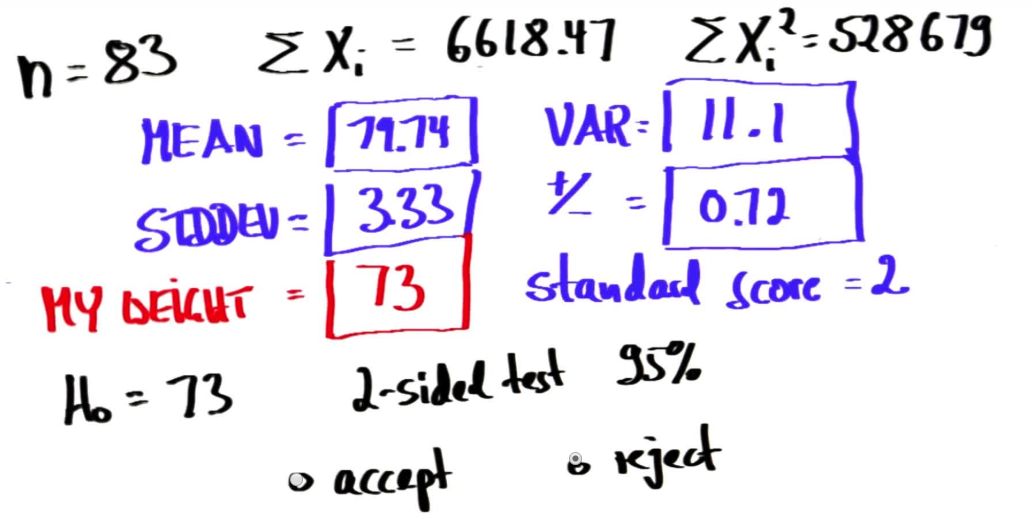 n = 83 ∑ Xi = 6618.47 ∑ Xi² = 528679
MEAN = 79.74 VAR = 11.1
STDDEV = 3.33 +/- = 0.72
MY WEIGHT = 73 standard score = 2
H₀ = 73 2-sided test 95%
accept reject